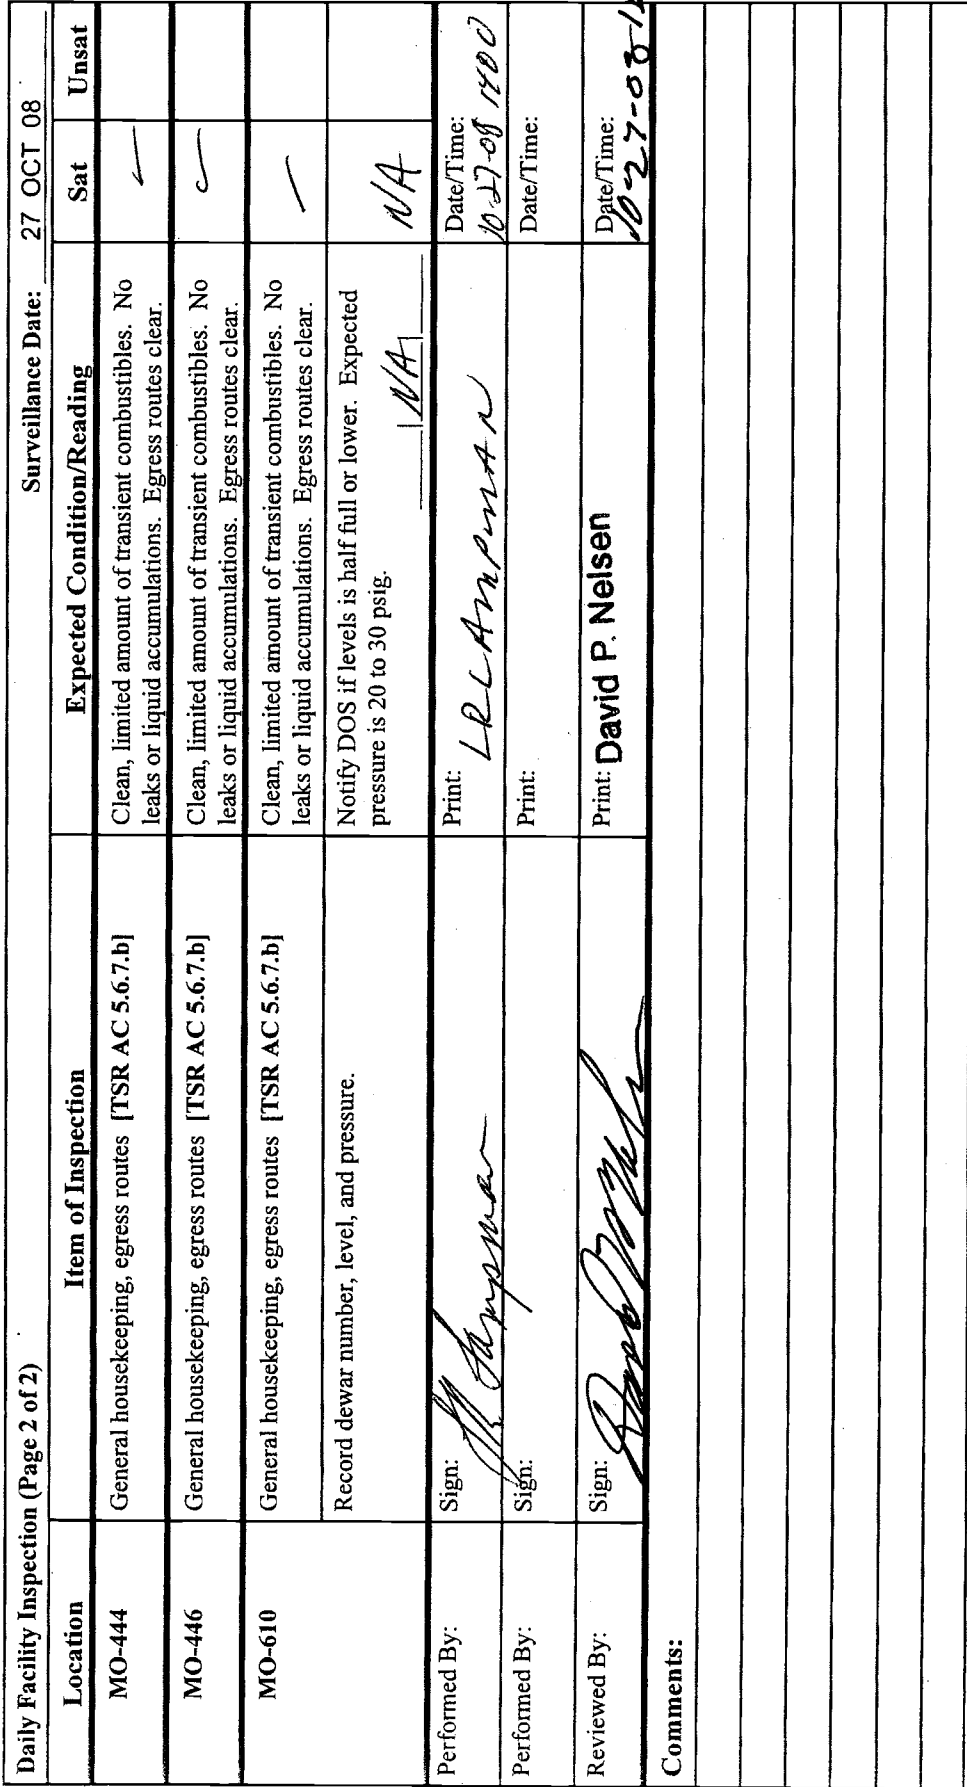 Daily Facility Inspection (Page 2 of 2)
Surveillance Date: 27 OCT 08
Location Item of Inspection Expected Condition/Reading Sat Unsat
MO-444 General housekeeping, egress routes [TSR AC 5.6.7.b] Clean, limited amount of transient combustibles. No
leaks or liquid accumulations. Egress routes clear.
MO-446 General housekeeping, egress routes [TSR AC 5.6.7.b] Clean, limited amount of transient combustibles. No
leaks or liquid accumulations. Egress routes clear.
MO-610 General housekeeping, egress routes [TSR AC 5.6.7.b] Clean, limited amount of transient combustibles. No
leaks or liquid accumulations. Egress routes clear.
Record dewar number, level, and pressure. Notify DOS if levels is half full or lower. Expected
pressure is 20 to 30 psig.
NA N/A
Performed By: Sign: Print: LR LAMPMAN Date/Time:
10-27-08 1400
Performed By: Sign: Print: Date/Time:
Reviewed By: Sign: Print: David P. Nelsen Date/Time:
10-27-08
Comments: